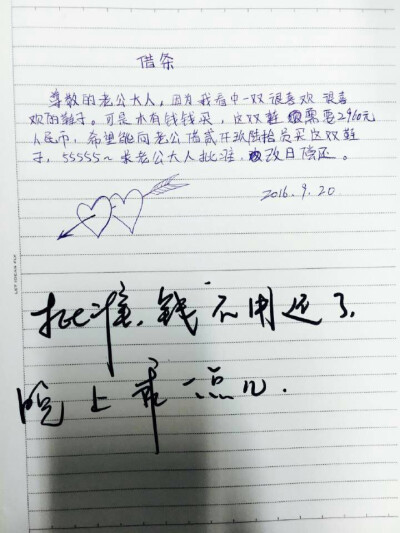 借条
尊敬的老公大人，因为我看中一双很喜欢 很喜
欢的鞋子。可是木有钱钱买，这双鞋需要2960元
人民币，希望能向老公借贰仟玖陆拾员买这双鞋
子，55555~ 求老公大人批准，改日偿还。
2016.9.20
批准，钱不用还了，
晚上乖一点儿.